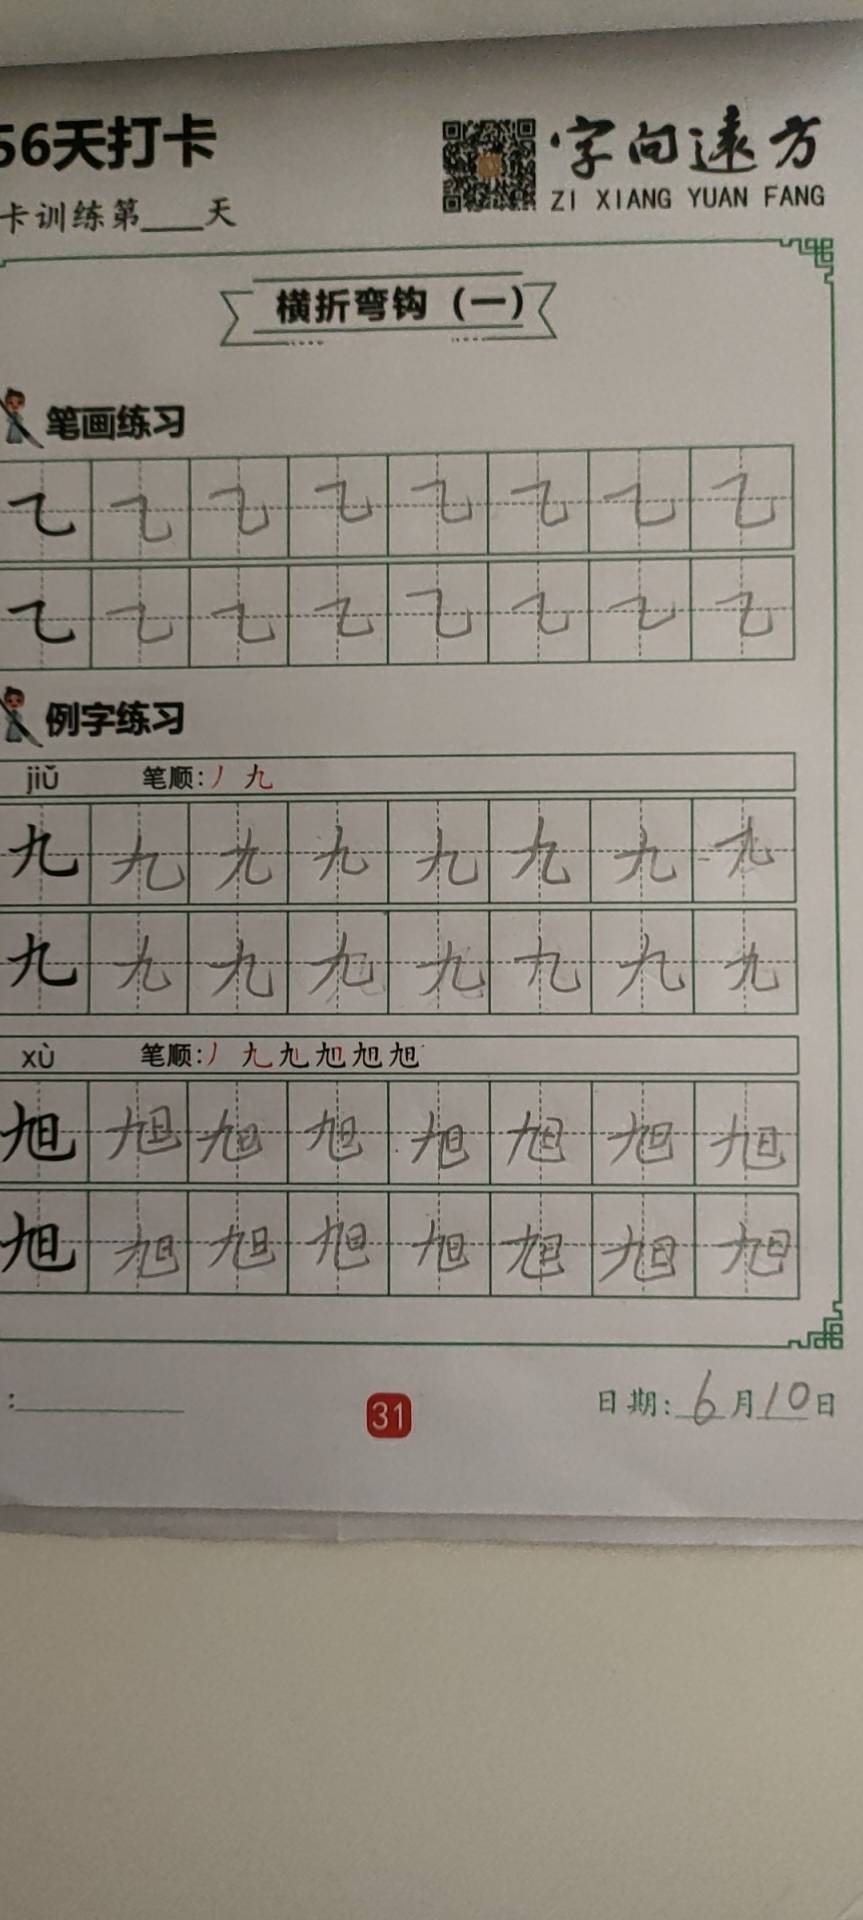 56天打卡
字向远方
ZI XIANG YUAN FANG
卡训练第____天
横折弯钩（一）
笔画练习
乁 乁 乁 乁 乁 乁 乁 乁
乁 乁 乁 乁 乁 乁 乁 乁
例字练习
jiǔ 笔顺：丿 九
九 九 九 九 九 九 九 九
九 九 九 九 九 九 九 九
xù 笔顺：丿 九 旭 旭 旭 旭
旭 旭 旭 旭 旭 旭 旭 旭
旭 旭 旭 旭 旭 旭 旭 旭
31
日期：6月10日